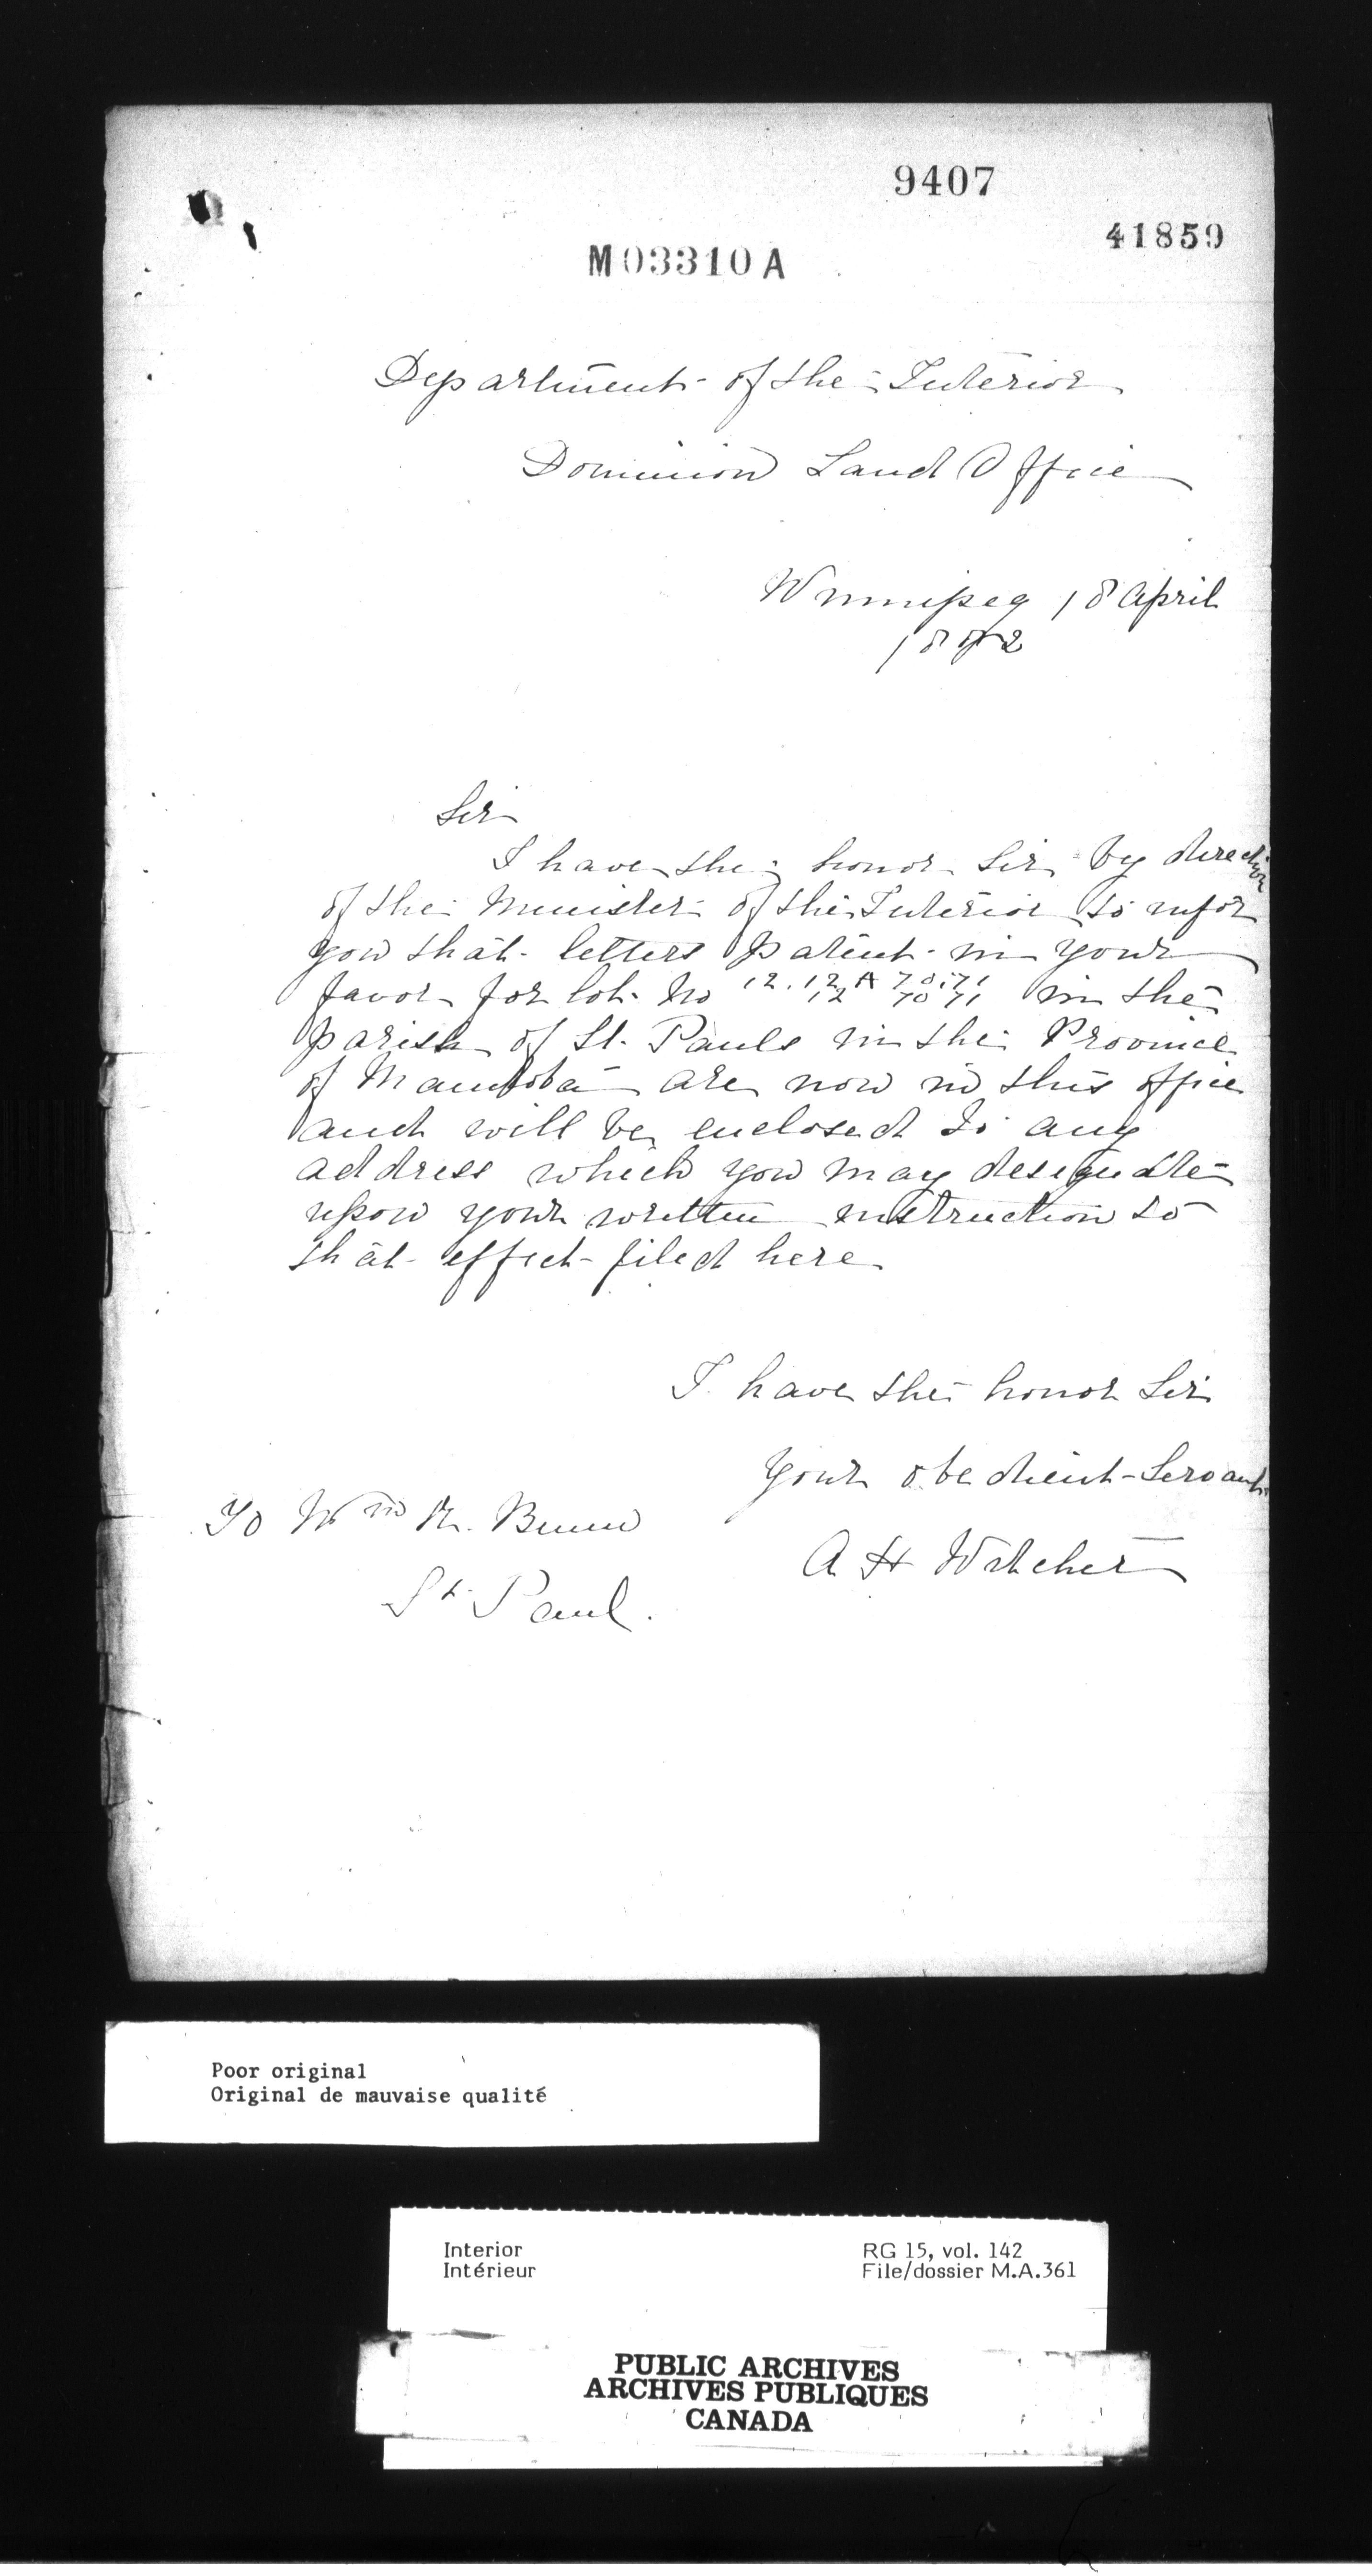 9407
41859
M03310A
Department of the Interior
Dominion Land Office
Winnipeg 18 April
1882
Sir
I have the honor Sir by direction
of the Minister of the Interior to infor
you that letters patent in your
favor for lot No 12. 12 A 70.71
12 70 71 in the
parish of St. Pauls in the Province
of Manitoba are now in this office
and will be enclosed to any
address which you may designate
upon your written instruction to
that effect filed here
I have the honor Sir
Your obedient Servant
A H Witcher
To Wm R. Bunn
St Paul.
Poor original
Original de mauvaise qualité
Interior
Intérieur
RG 15, vol. 142
File/dossier M.A.361
PUBLIC ARCHIVES
ARCHIVES PUBLIQUES
CANADA